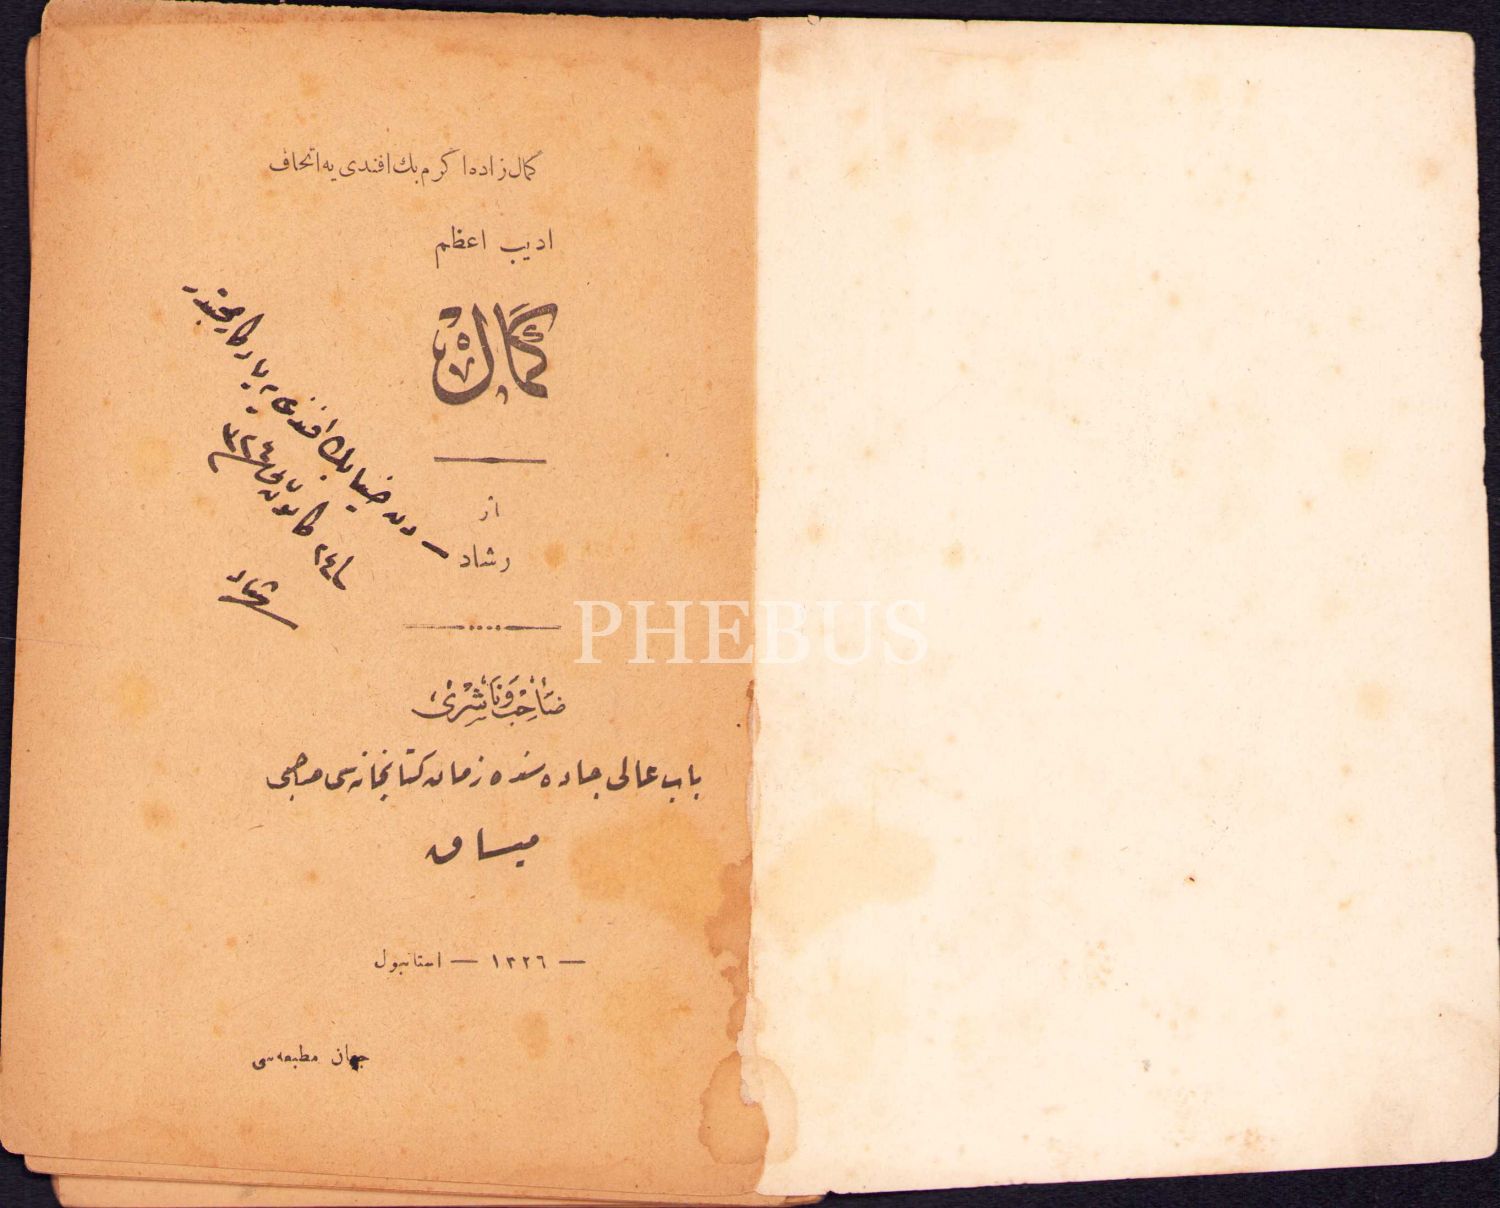 كمال زاده اكرم بك افندی یه اتحاف
ادیب اعظم
كمال
از
رشاد
صاحب و ناشری
باب عالی جاده سنده زمان كتابخانه سی صاحبی
میساق
— ١٣٢٦ — استانبول
جهان مطبعه سی
ضیا بك افندی یه یادكارمحبتدر
٢٤ كانون ٣٢٤
رشاد
PHEBUS